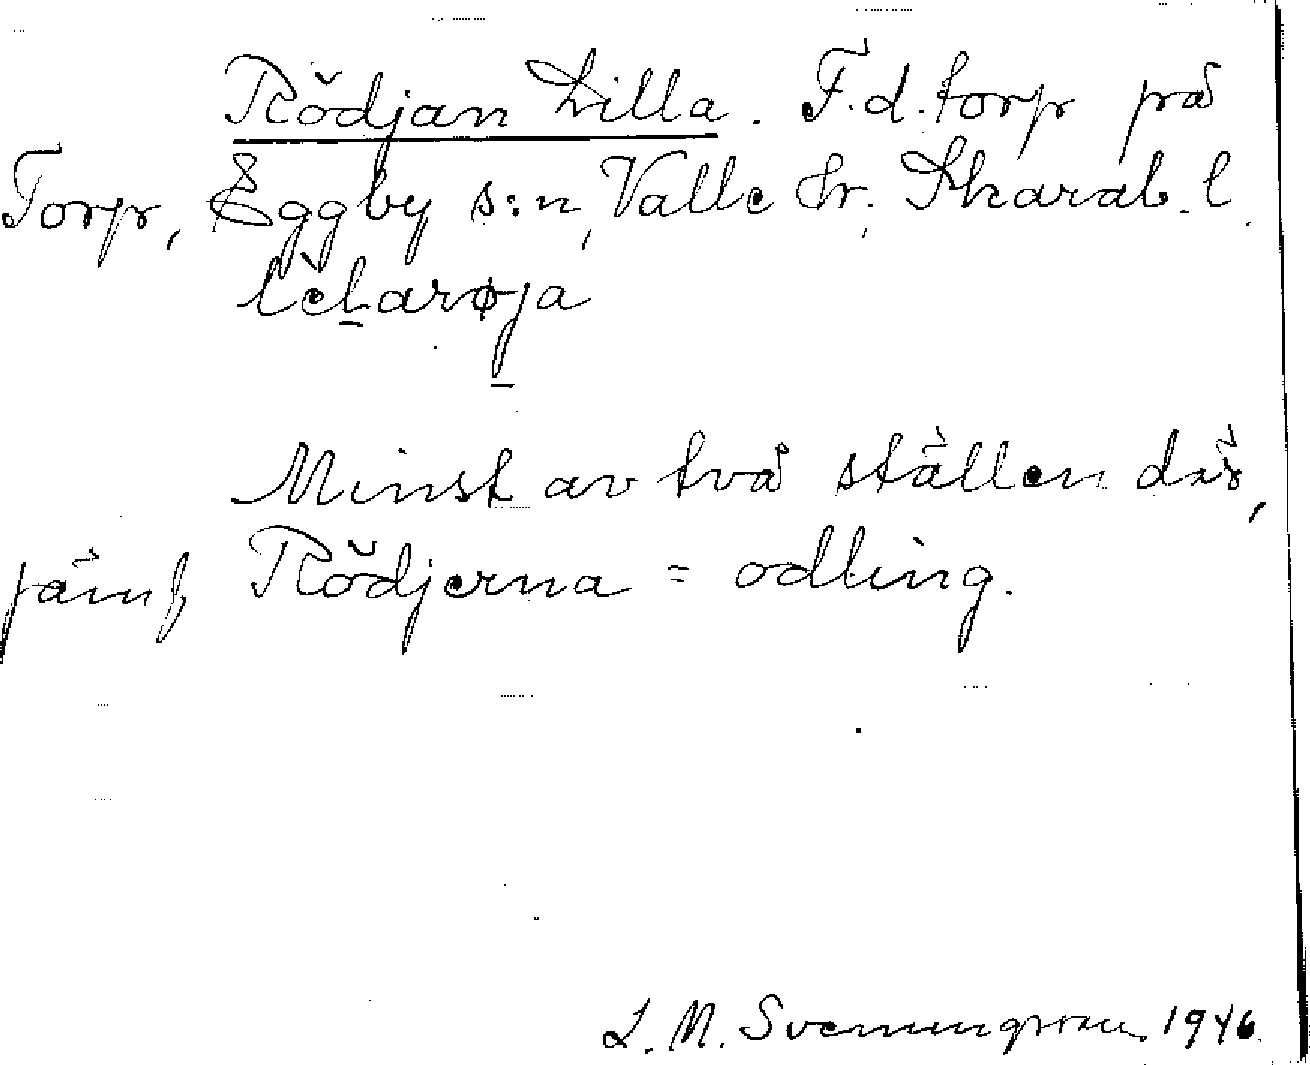 Rödjan Lilla. F.d. torp på
Torp, Eggby s:n, Valle hr. Skarab. l.
Minst av två ställen där,
jämf Rödjerna = odling.
L. N. Svenungsson 1946